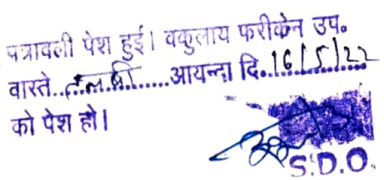 पत्रावली पेश हुई। वकुलाय फरीकेन उप०
वास्ते..तलबी.......आयन्दा दि.16/5/22
को पेश हो।
S.D.O.